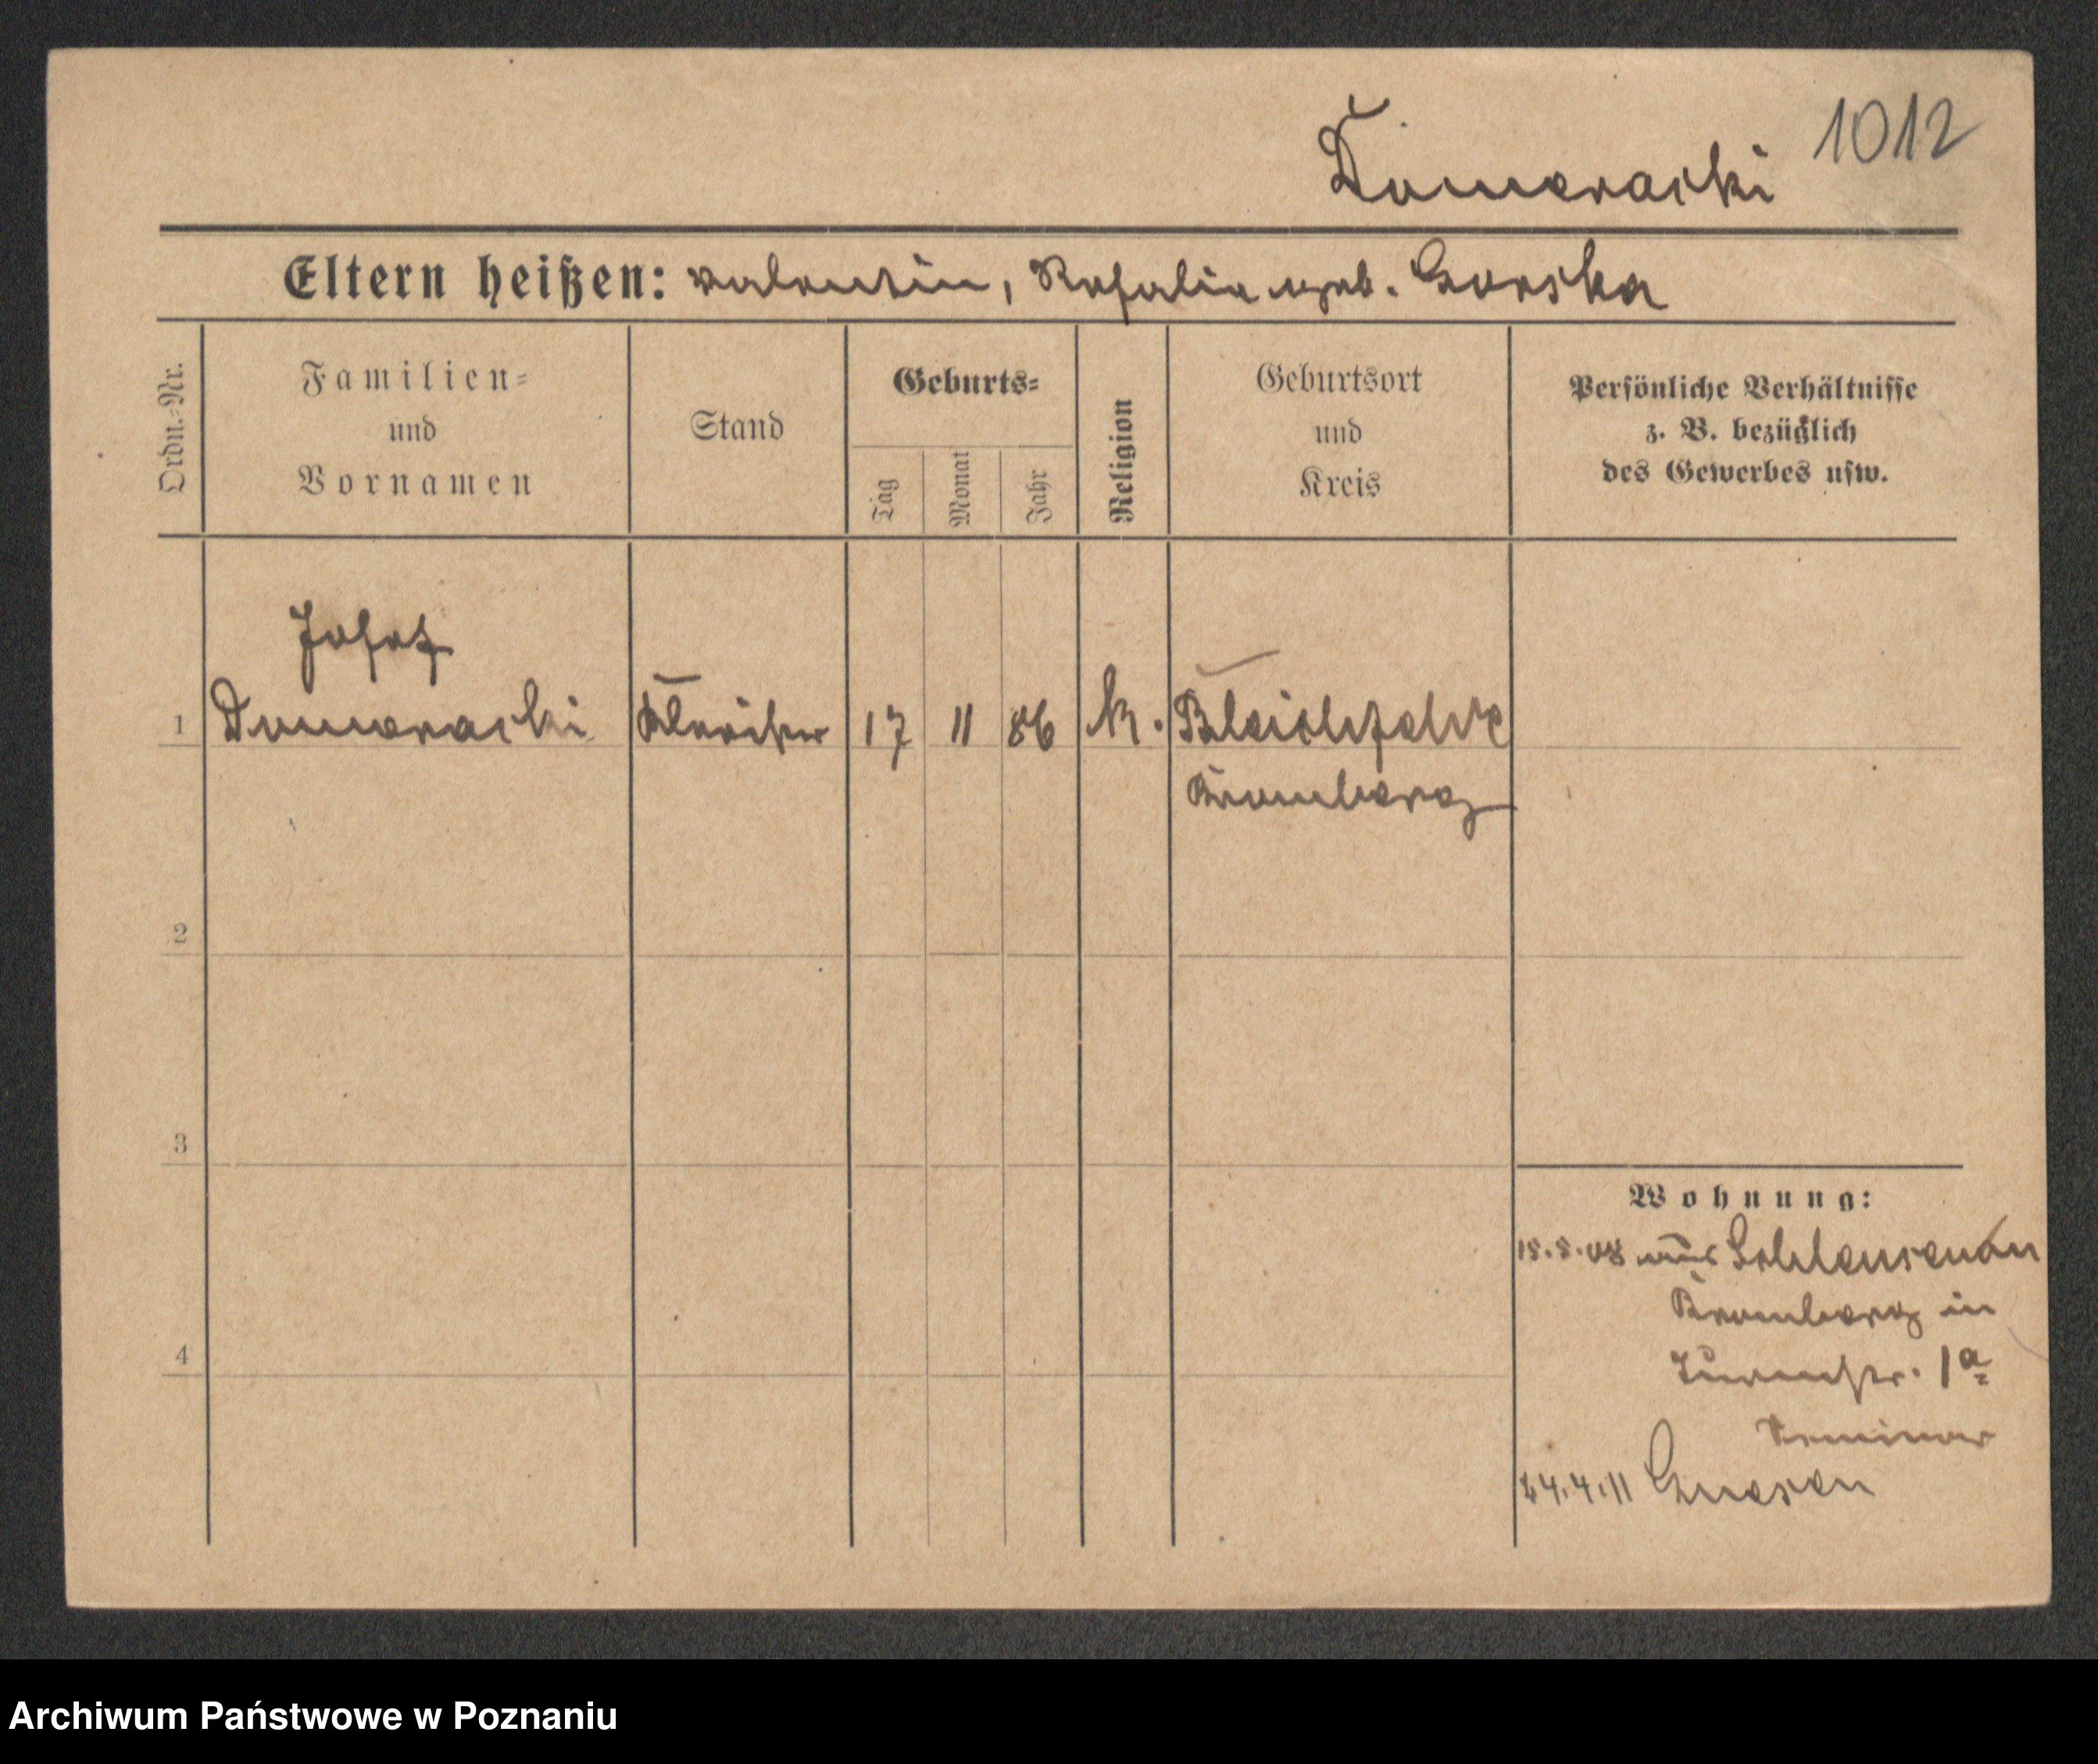 1012
Domeracki
Eltern heißen: Valentin, Rosalia geb. Gorska
Ordn.-Nr.
Familien-
und
Vornamen
Stand
Geburts-
Tag
Monat
Jahr
Religion
Geburtsort
und
Kreis
Persönliche Verhältnisse
z. B. bezüglich
des Gewerbes usw.
Josef
1 Domeracki Kleriker 17 11 86 K. Bleichfelde
Bromberg
2
3
4
Wohnung:
15.5.08 aus Schleusenau
Bromberg in
Turmstr. 1a
Seminar
24.4.11 Gnesen
Archiwum Państwowe w Poznaniu